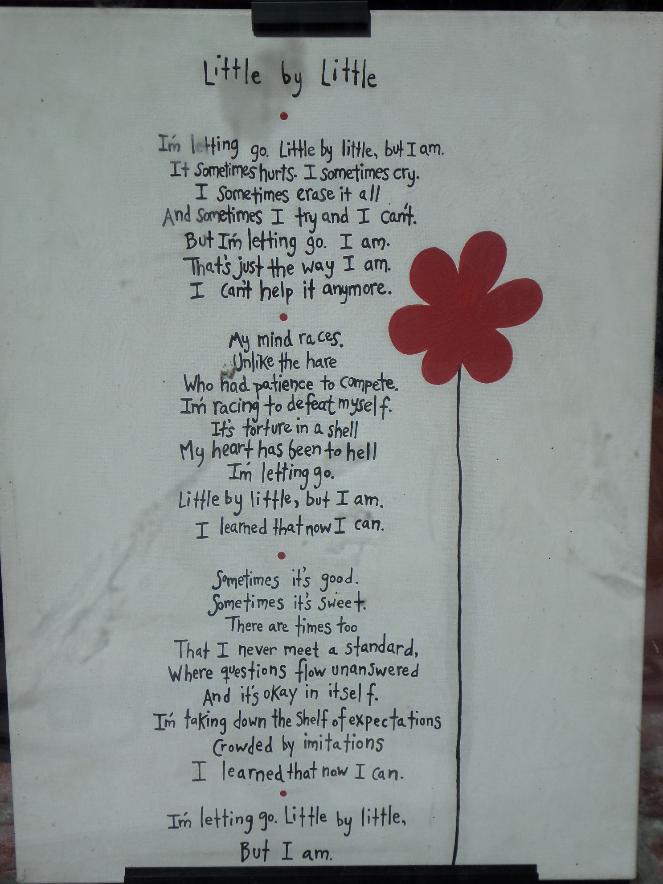 Little by Little
I'm letting go. Little by little, but I am.
It Sometimes hurts. I sometimes cry.
I sometimes erase it all
And sometimes I try and I can't.
But I'm letting go. I am.
That's just the way I am.
I can't help it anymore.
My mind races.
Unlike the hare
Who had patience to compete.
I'm racing to defeat myself.
It's torture in a shell
My heart has been to hell
I'm letting go.
Little by little, but I am.
I learned that now I can.
Sometimes it's good.
Sometimes it's sweet.
There are times too
That I never meet a standard,
Where questions flow unanswered
And it's okay in itself.
I'm taking down the shelf of expectations
Crowded by imitations
I learned that now I can.
I'm letting go. Little by little,
But I am.